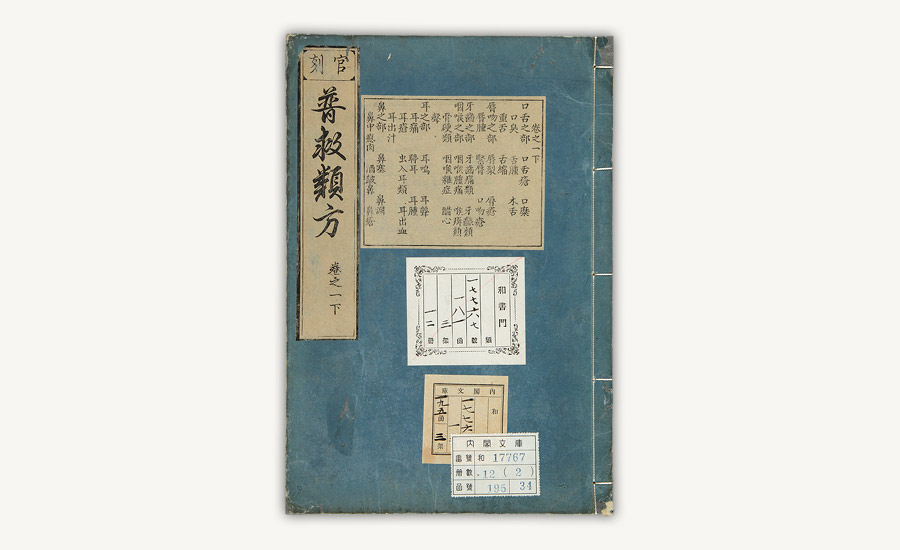 官刻
普救類方
巻之一下
巻之一下
口舌之部 口舌瘡 口糜
口臭 舌腫 木舌
重舌 舌縮
唇吻之部 唇裂 唇瘡
唇腫 緊唇 口吻瘡
牙歯之部 牙歯痛類 牙類
咽喉之部 咽喉腫痛
骨硬類 咽喉雑症
聲
耳之部 耳鳴 耳聾
耳痛 聤耳 耳腫
耳瘡 虫入耳類 耳出血
耳出汁
鼻之部 鼻塞 鼻淵
鼻中瘜肉 酒皶鼻 鼻瘡
和書門
類
一七七六七 號
一八一 函
三 架
一二 冊
內閣文庫
和
一七七六
一九五 函
三 架
內閣文庫
番號 和 17767
冊數 12 (2)
函號 195 34